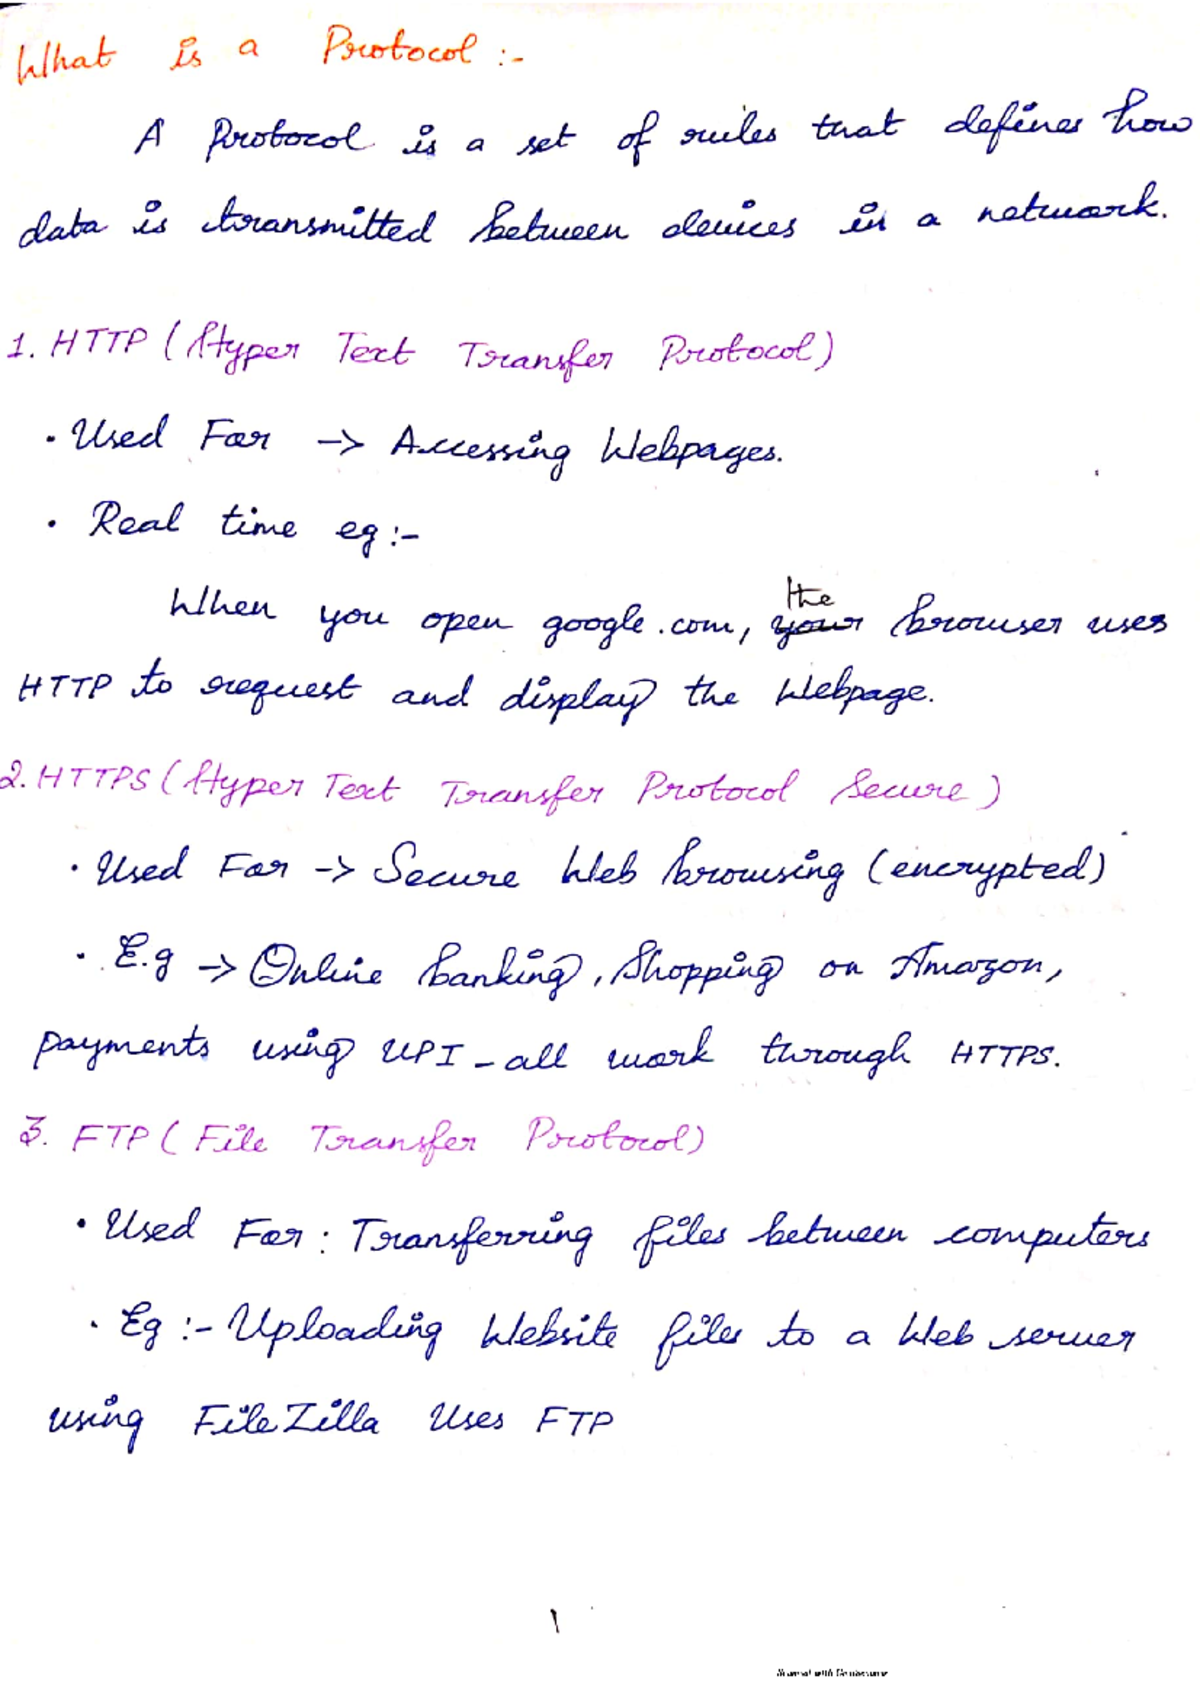 What is a Protocol :-
A Protocol is a set of rules that defines how
data is transmitted between devices in a network.
1. HTTP (Hyper Text Transfer Protocol)
• Used For -> Accessing Webpages.
• Real time eg :-
the
When you open google.com, your browser uses
HTTP to request and display the Webpage.
2. HTTPS (Hyper Text Transfer Protocol Secure)
• Used For -> Secure Web browsing (encrypted)
• E.g -> Online banking, Shopping on Amazon,
payments using UPI - all work through HTTPS.
3. FTP ( File Transfer Protocol)
• Used For : Transferring files between computers
• Eg :- Uploading Website files to a Web server
using FileZilla Uses FTP
1